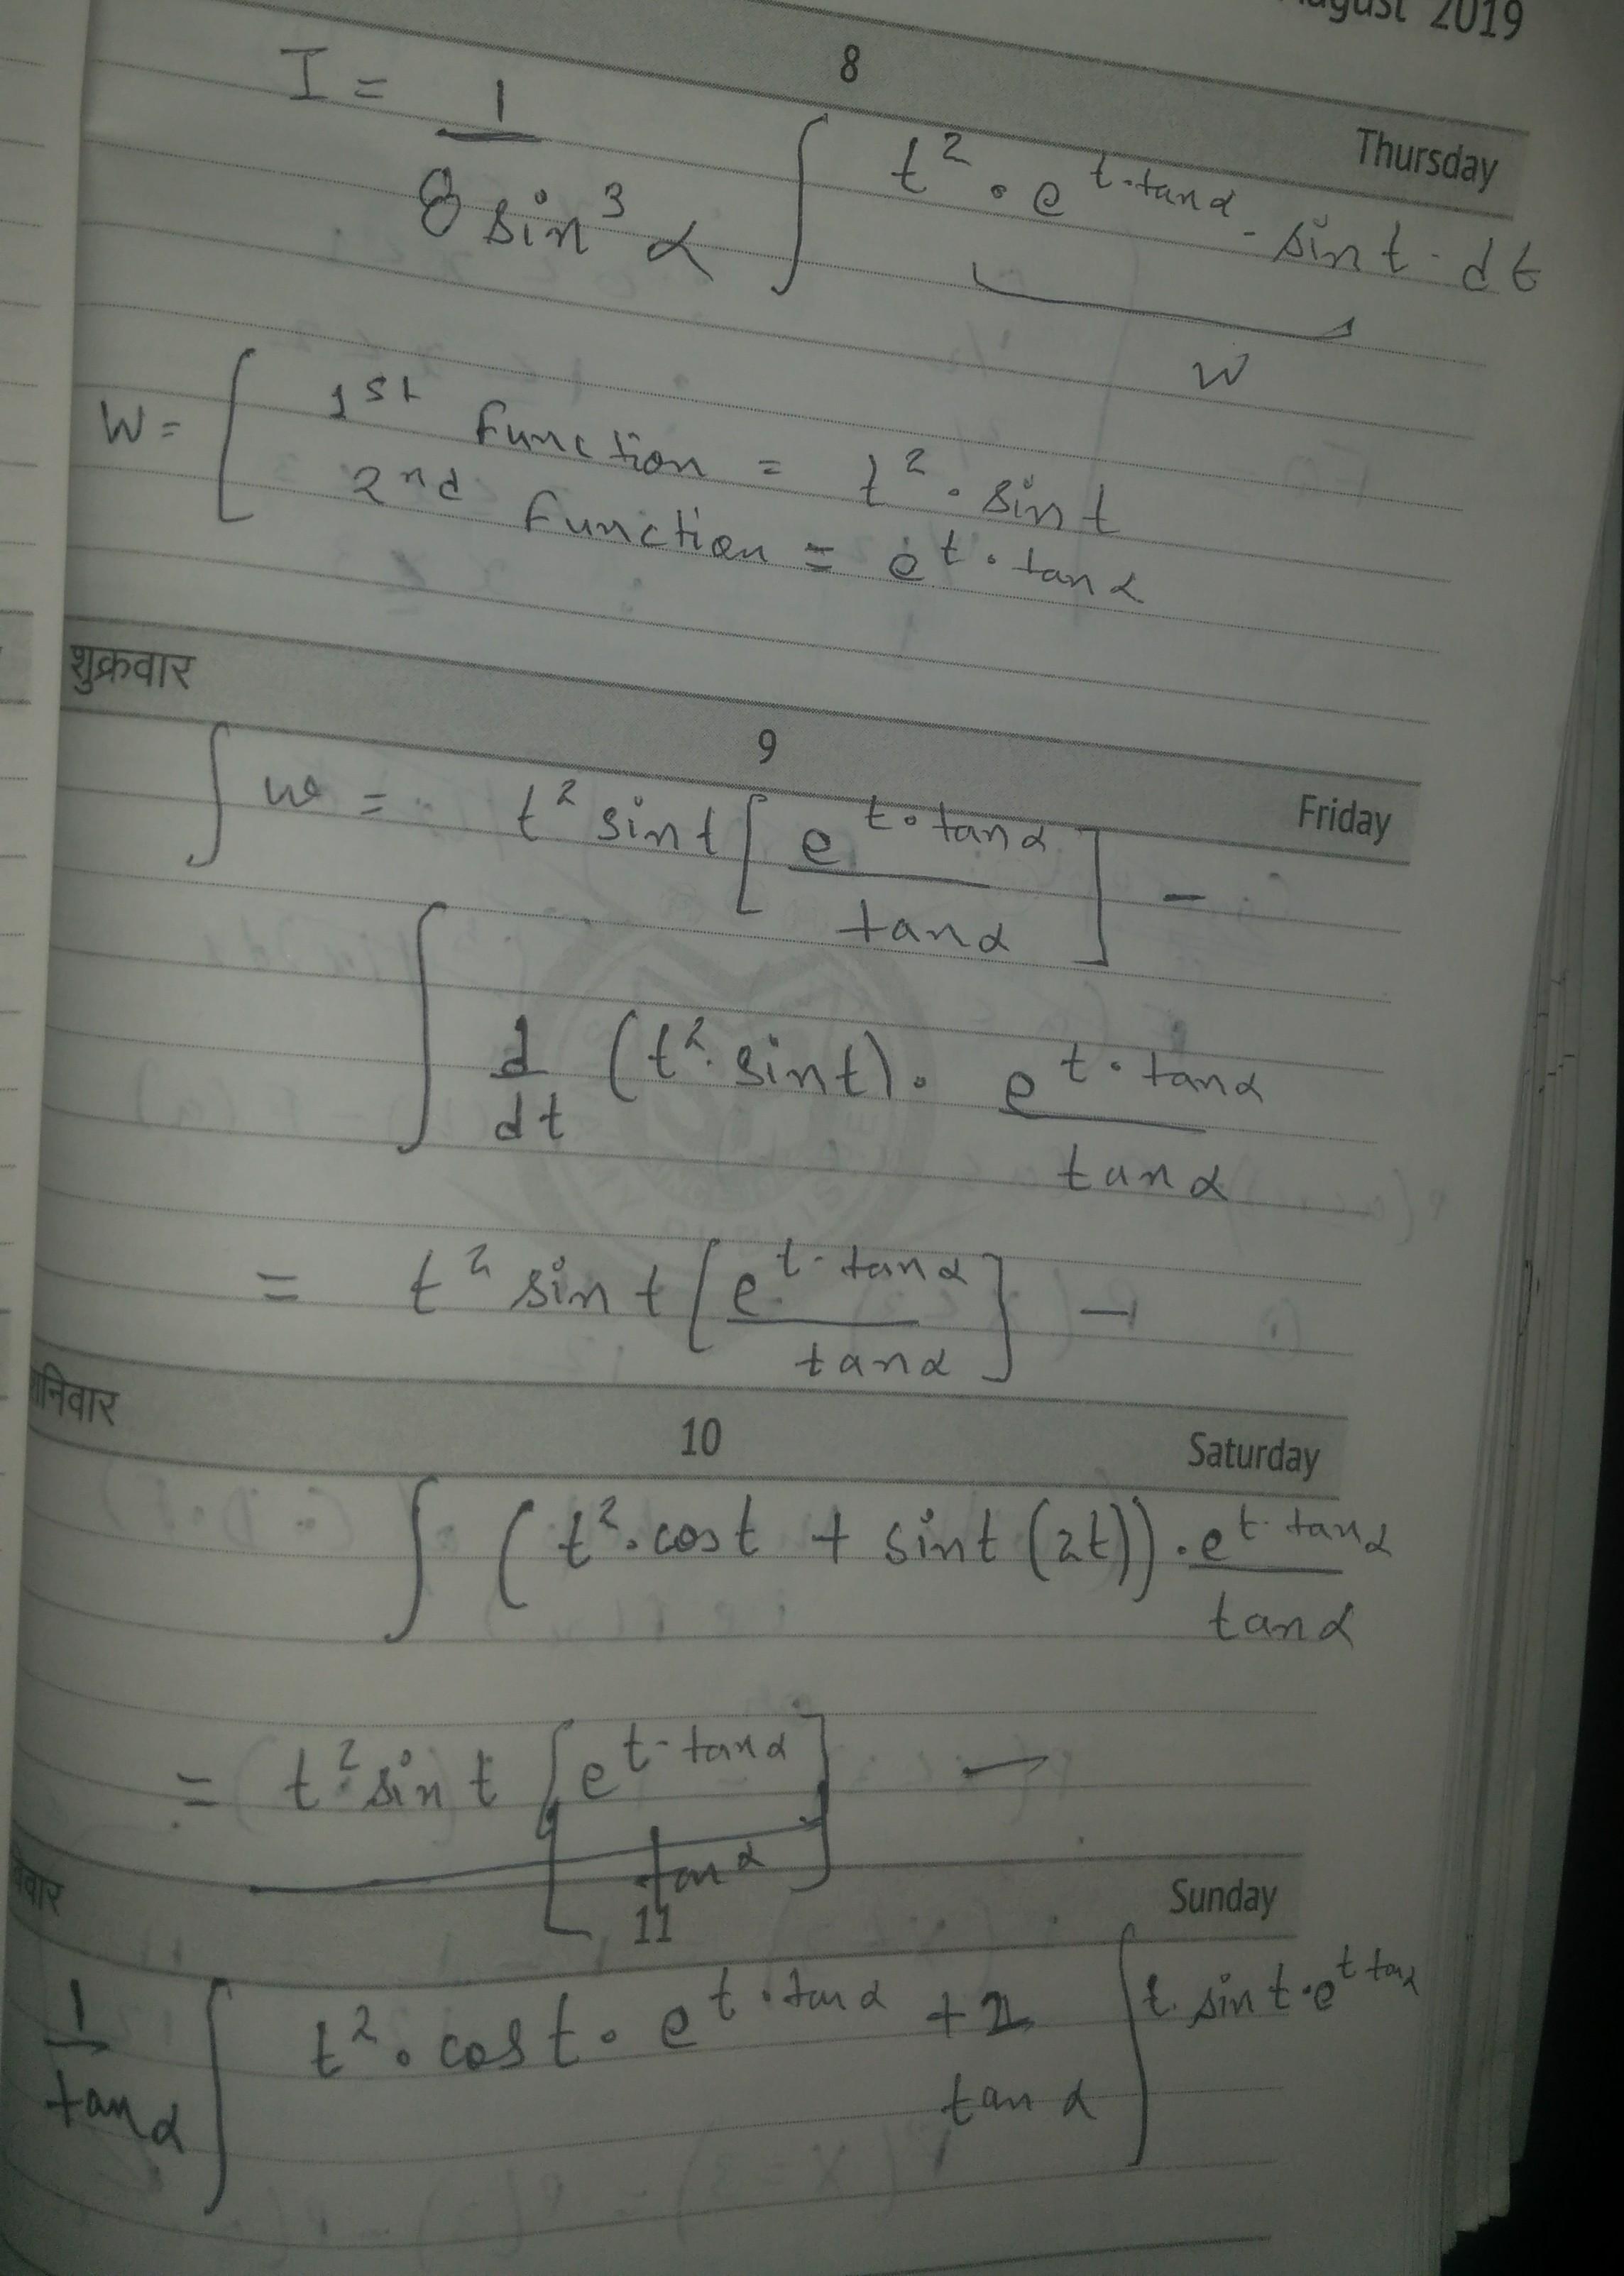 August 2019
8
Thursday
I = 1 / 8 sin³ α ∫ t² · e^(t·tan α) · sin t · dt
w
W = [ 1st function = t² · sin t
2nd function = e^t · tan α
शुक्रवार
9
Friday
∫ w = t² sin t [ e^(t·tan α) / tan α ] −
∫ d/dt (t² · sin t) · e^(t·tan α) / tan α
= t² sin t [ e^(t·tan α) / tan α ] −
10
Saturday
∫ ( t² · cos t + sin t (2t)) · e^(t·tan α) / tan α
= t² · sin t [ e^(t·tan α) / tan α ] −
11
Sunday
1 / tan α ∫ t² · cos t · e^(t·tan α) + 2 / tan α ∫ t · sin t · e^(t tan α)